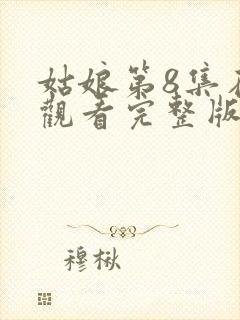 姑娘第8集在
觀看完整版
穆楸